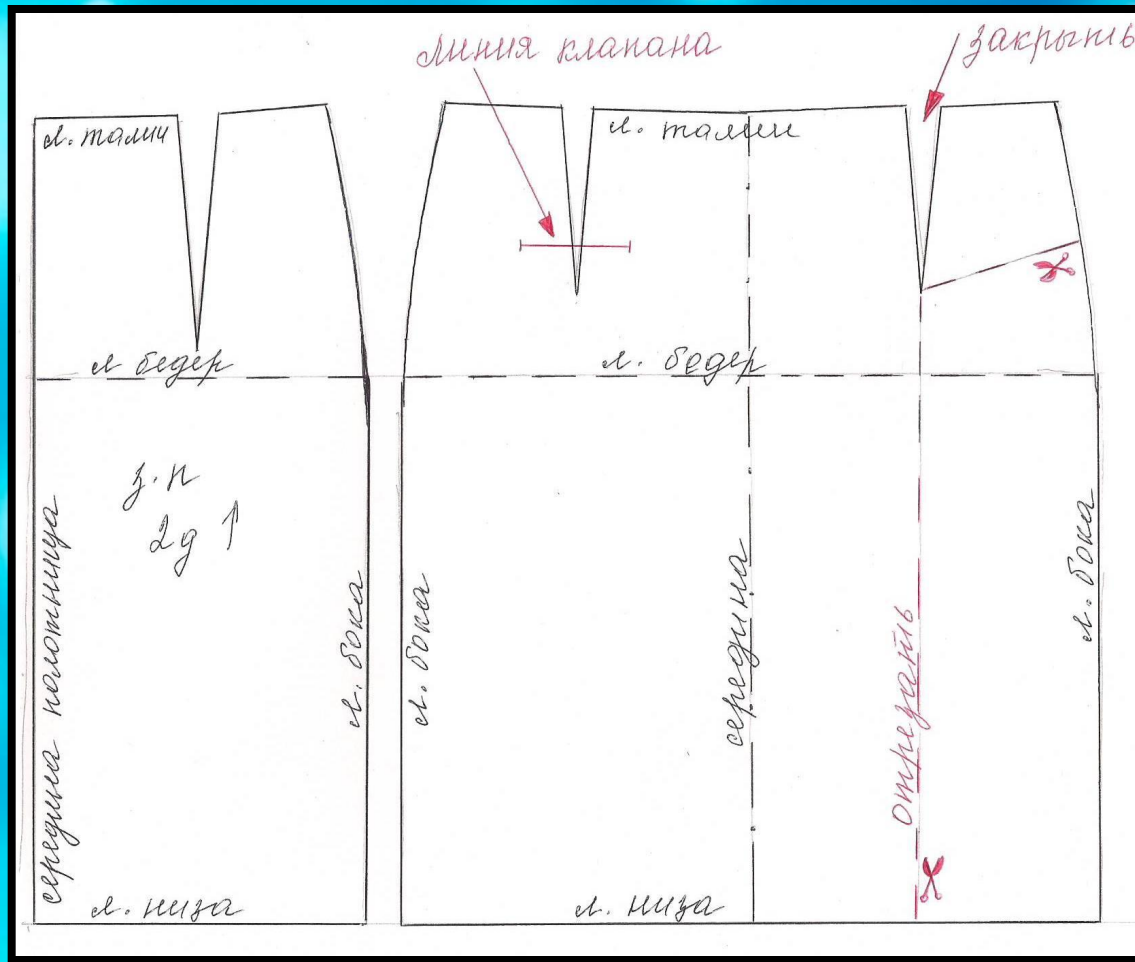 линия клапана
закрыть
л. талии
л. талии
л бедер
л. бедер
з.п
2д ↑
середина полотнища
л. бока
л. бока
середина
отрезать
л. бока
л. низа
л. низа